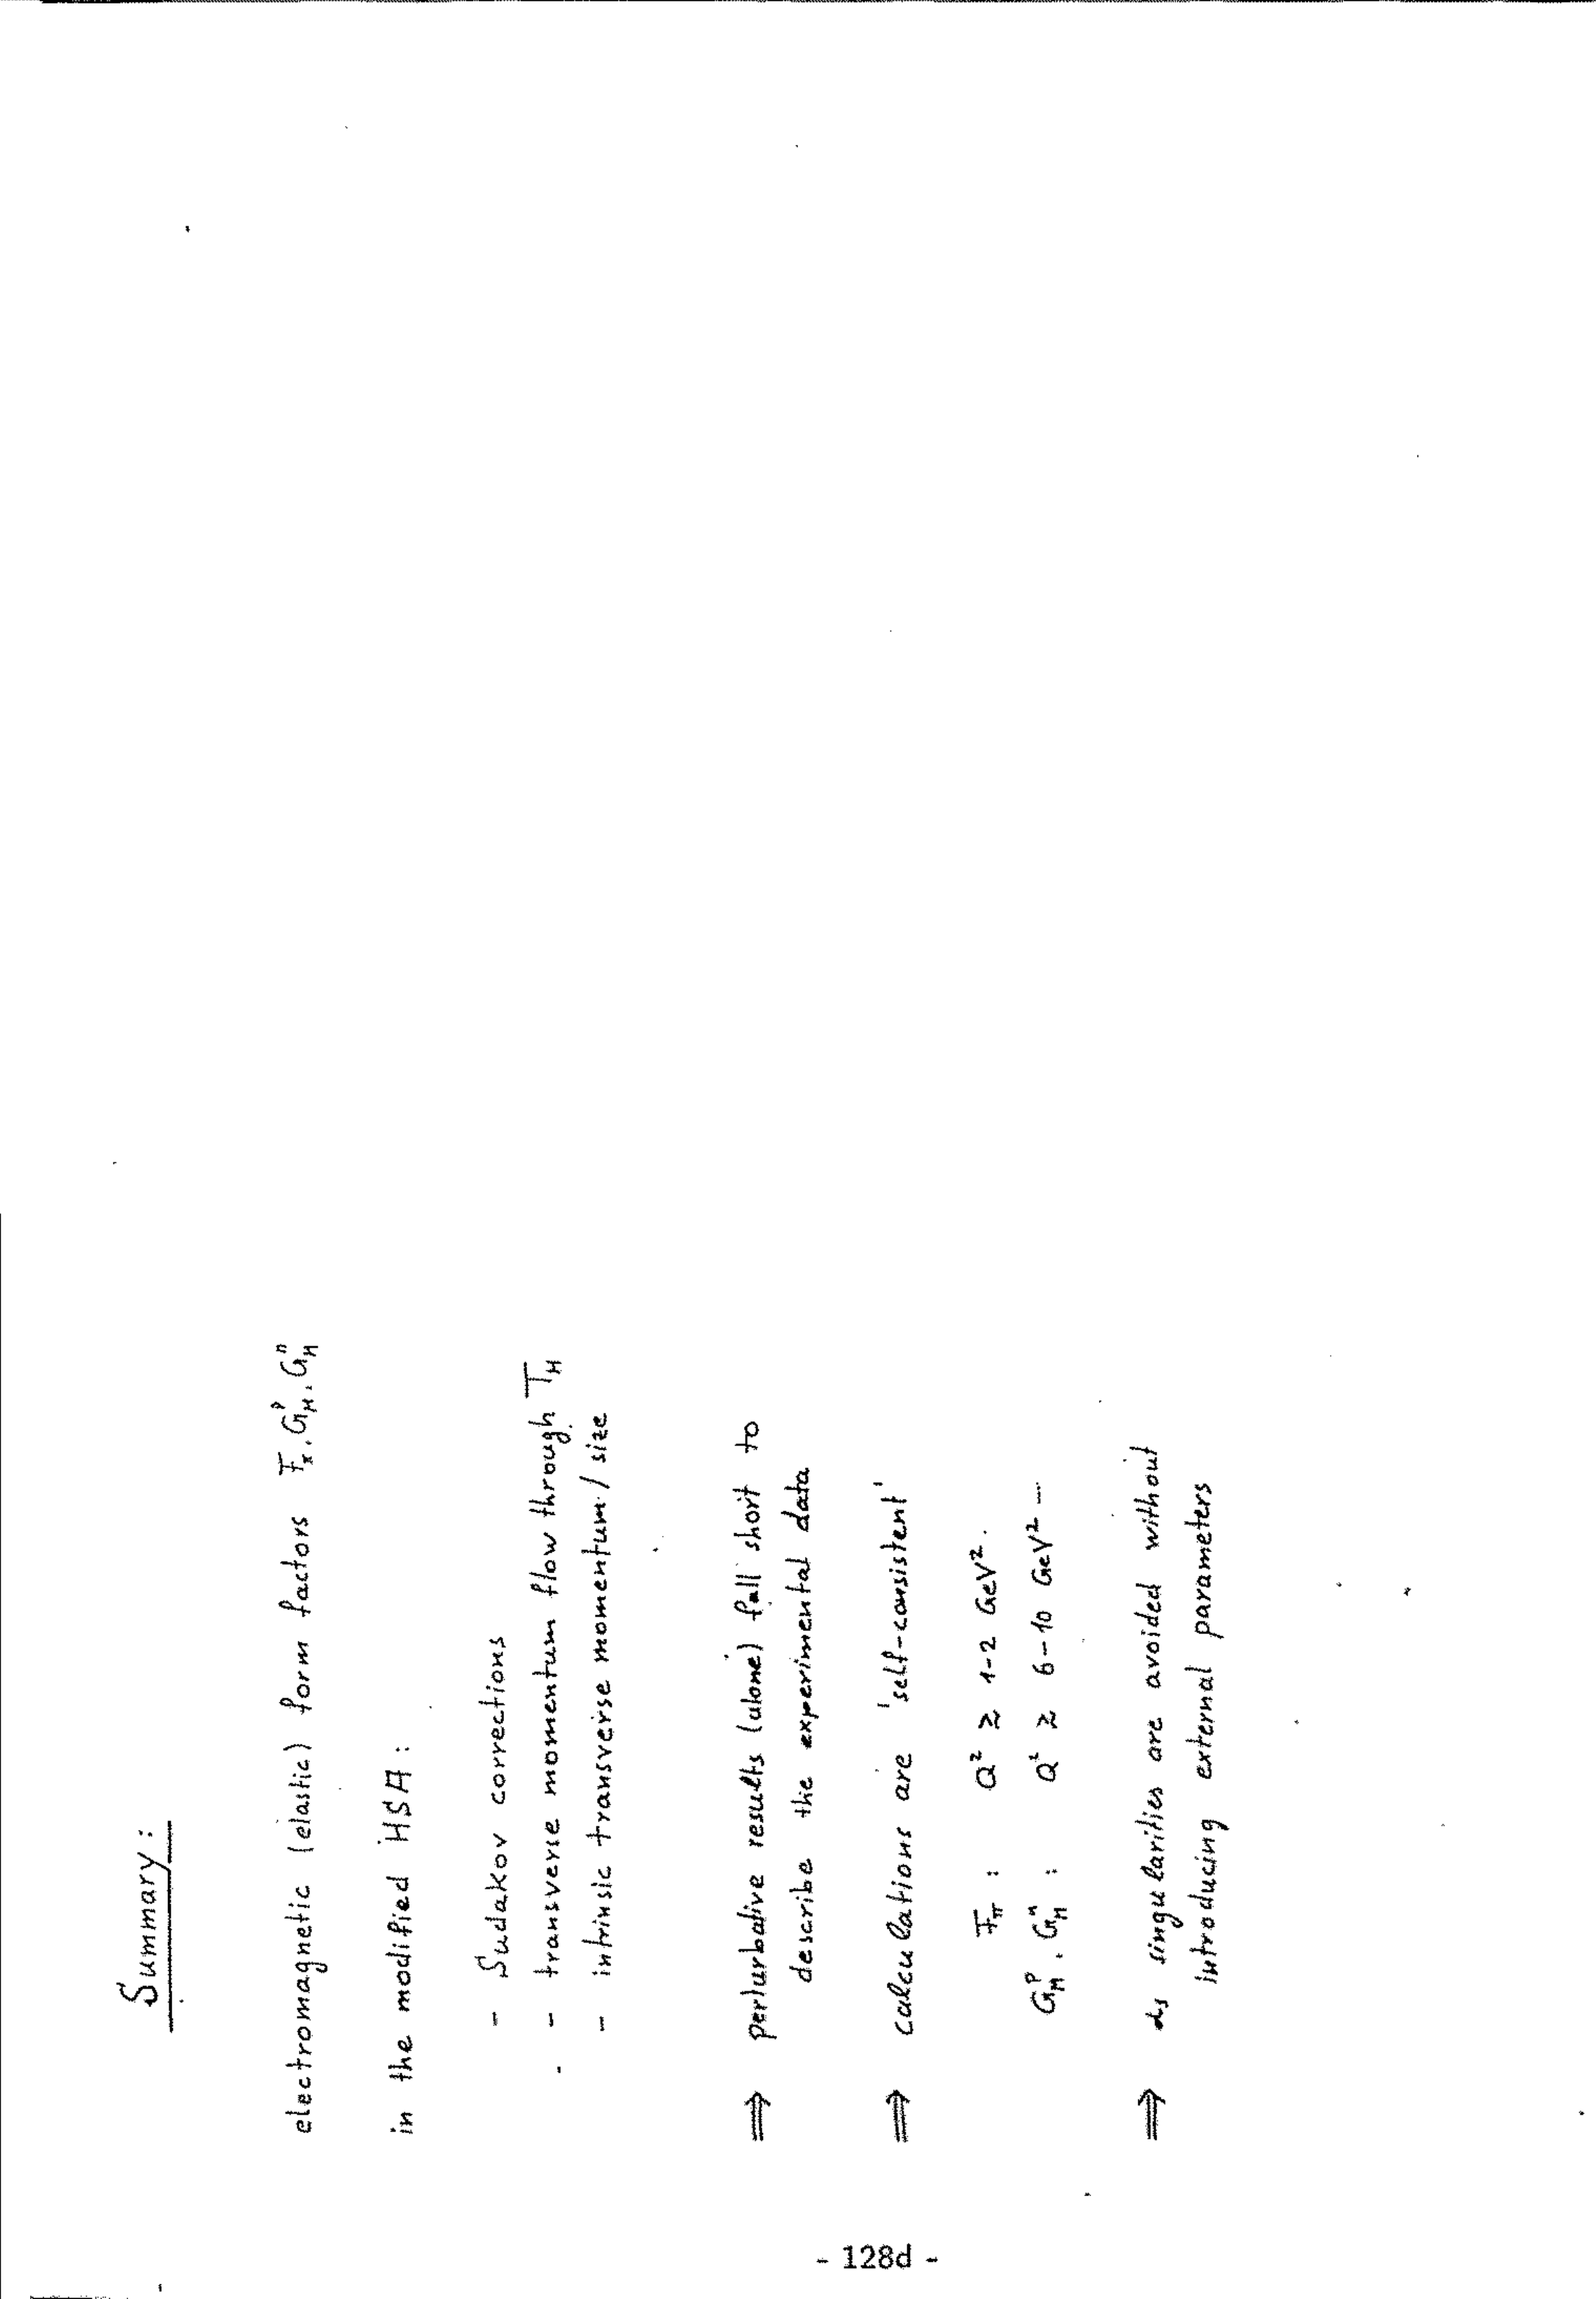 Summary :
electromagnetic (elastic) form factors Fπ, G_M^p, G_M^n
in the modified HSA :
- Sudakov corrections
- transverse momentum flow through T_H
- intrinsic transverse momentum / size
⟹ perturbative results (alone) fall short to
describe the experimental data
⟹ calculations are 'self-consistent'
Fπ : Q² ≳ 1-2 GeV².
G_M^p, G_M^n : Q² ≳ 6-10 GeV² –
⟹ αs singularities are avoided without
introducing external parameters
- 128d -